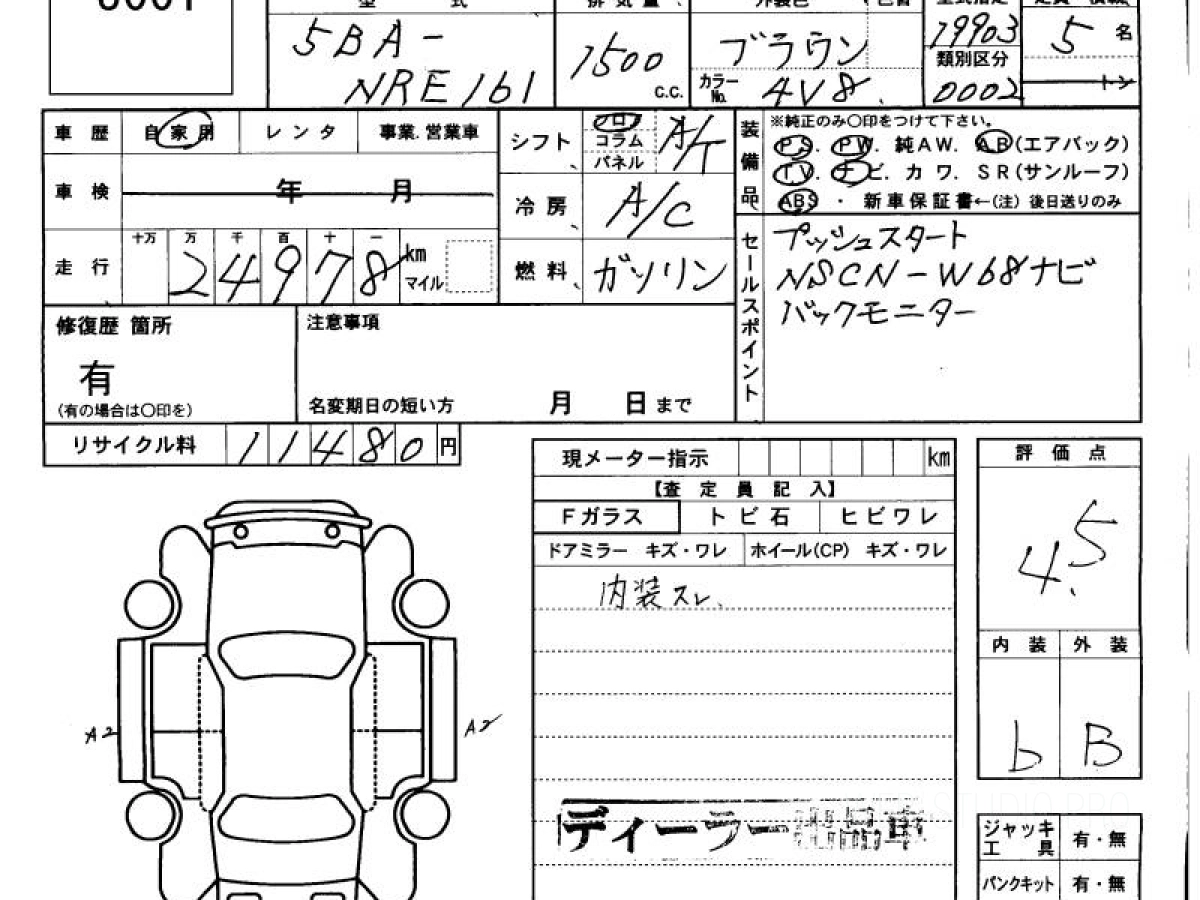 5BA-
NRE161
1500
C.C.
ブラウン
カラーNo. 4V8
19903
類別区分
0002
5 名
トン
車歴 自家用 レンタ 事業.営業車
車検 年 月
走行 十万 万 千 百 十 一
24978 km
マイル
シフト フロア コラム パネル A/T
冷房 A/C
燃料 ガソリン
装備品
※純正のみ〇印をつけて下さい。
PS. PW. 純AW. AB(エアバック)
TV. ナビ. カワ. SR(サンルーフ)
ABS ・ 新車保証書←(注) 後日送りのみ
セールスポイント
プッシュスタート
NSCN-W68ナビ
バックモニター
修復歴 箇所
有
(有の場合は〇印を)
注意事項
名変期日の短い方 月 日まで
リサイクル料 11480 円
現メーター指示 km
【査定員記入】
Fガラス トビ石 ヒビワレ
ドアミラー キズ・ワレ ホイール(CP) キズ・ワレ
内装スレ、
評価点
4.5
内装 外装
b B
A2
A2
ディーラー出品車
ジャッキ 工具 有・無
パンクキット 有・無